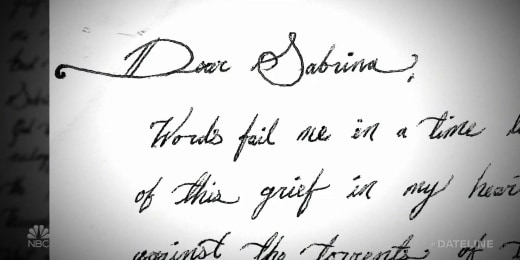 Dear Sabrina,
Words fail me in a time
of this grief in my hear
against the torrents of
NBC
DATELINE